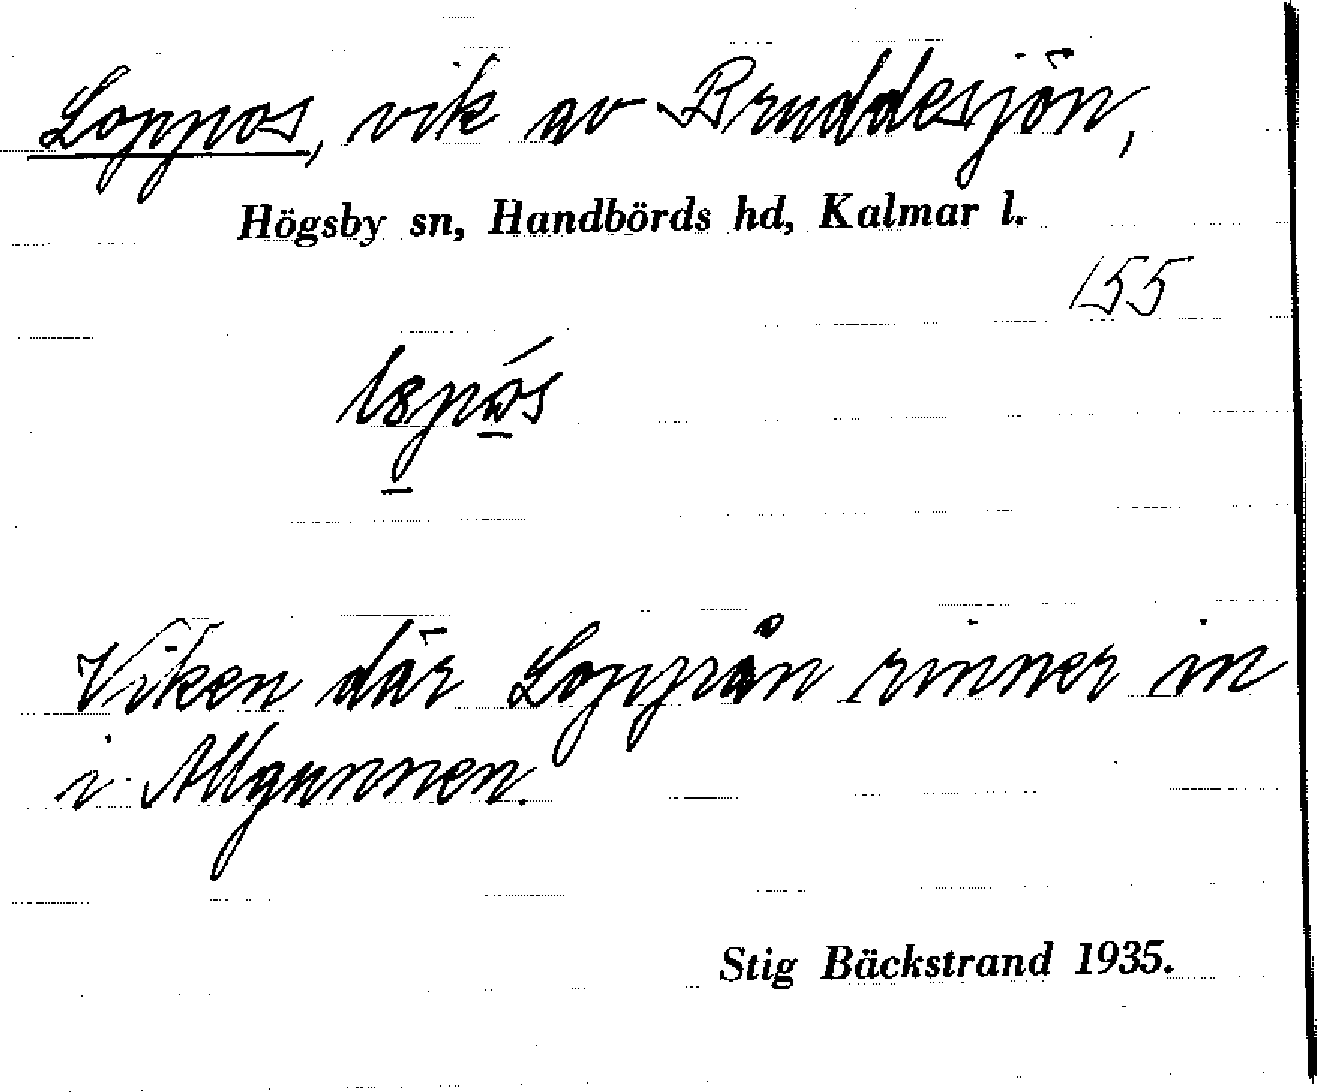 Loppos, vik av Bruddesjön,
Högsby sn, Handbörds hd, Kalmar l.
155
Viken där Loppån rinner in
i Allgunnen.
Stig Bäckstrand 1935.